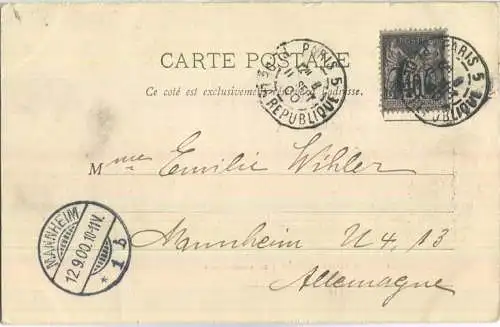 CARTE POSTALE
Ce côté est exclusivement réservé à l'adresse.
PARIS 5
RÉPUBLIQUE
PARIS 5
10
Mme Emilie Wihler
Mannheim U 4. 13
Allemagne
MANNHEIM
12.9.00.10-11V.
* 1 b